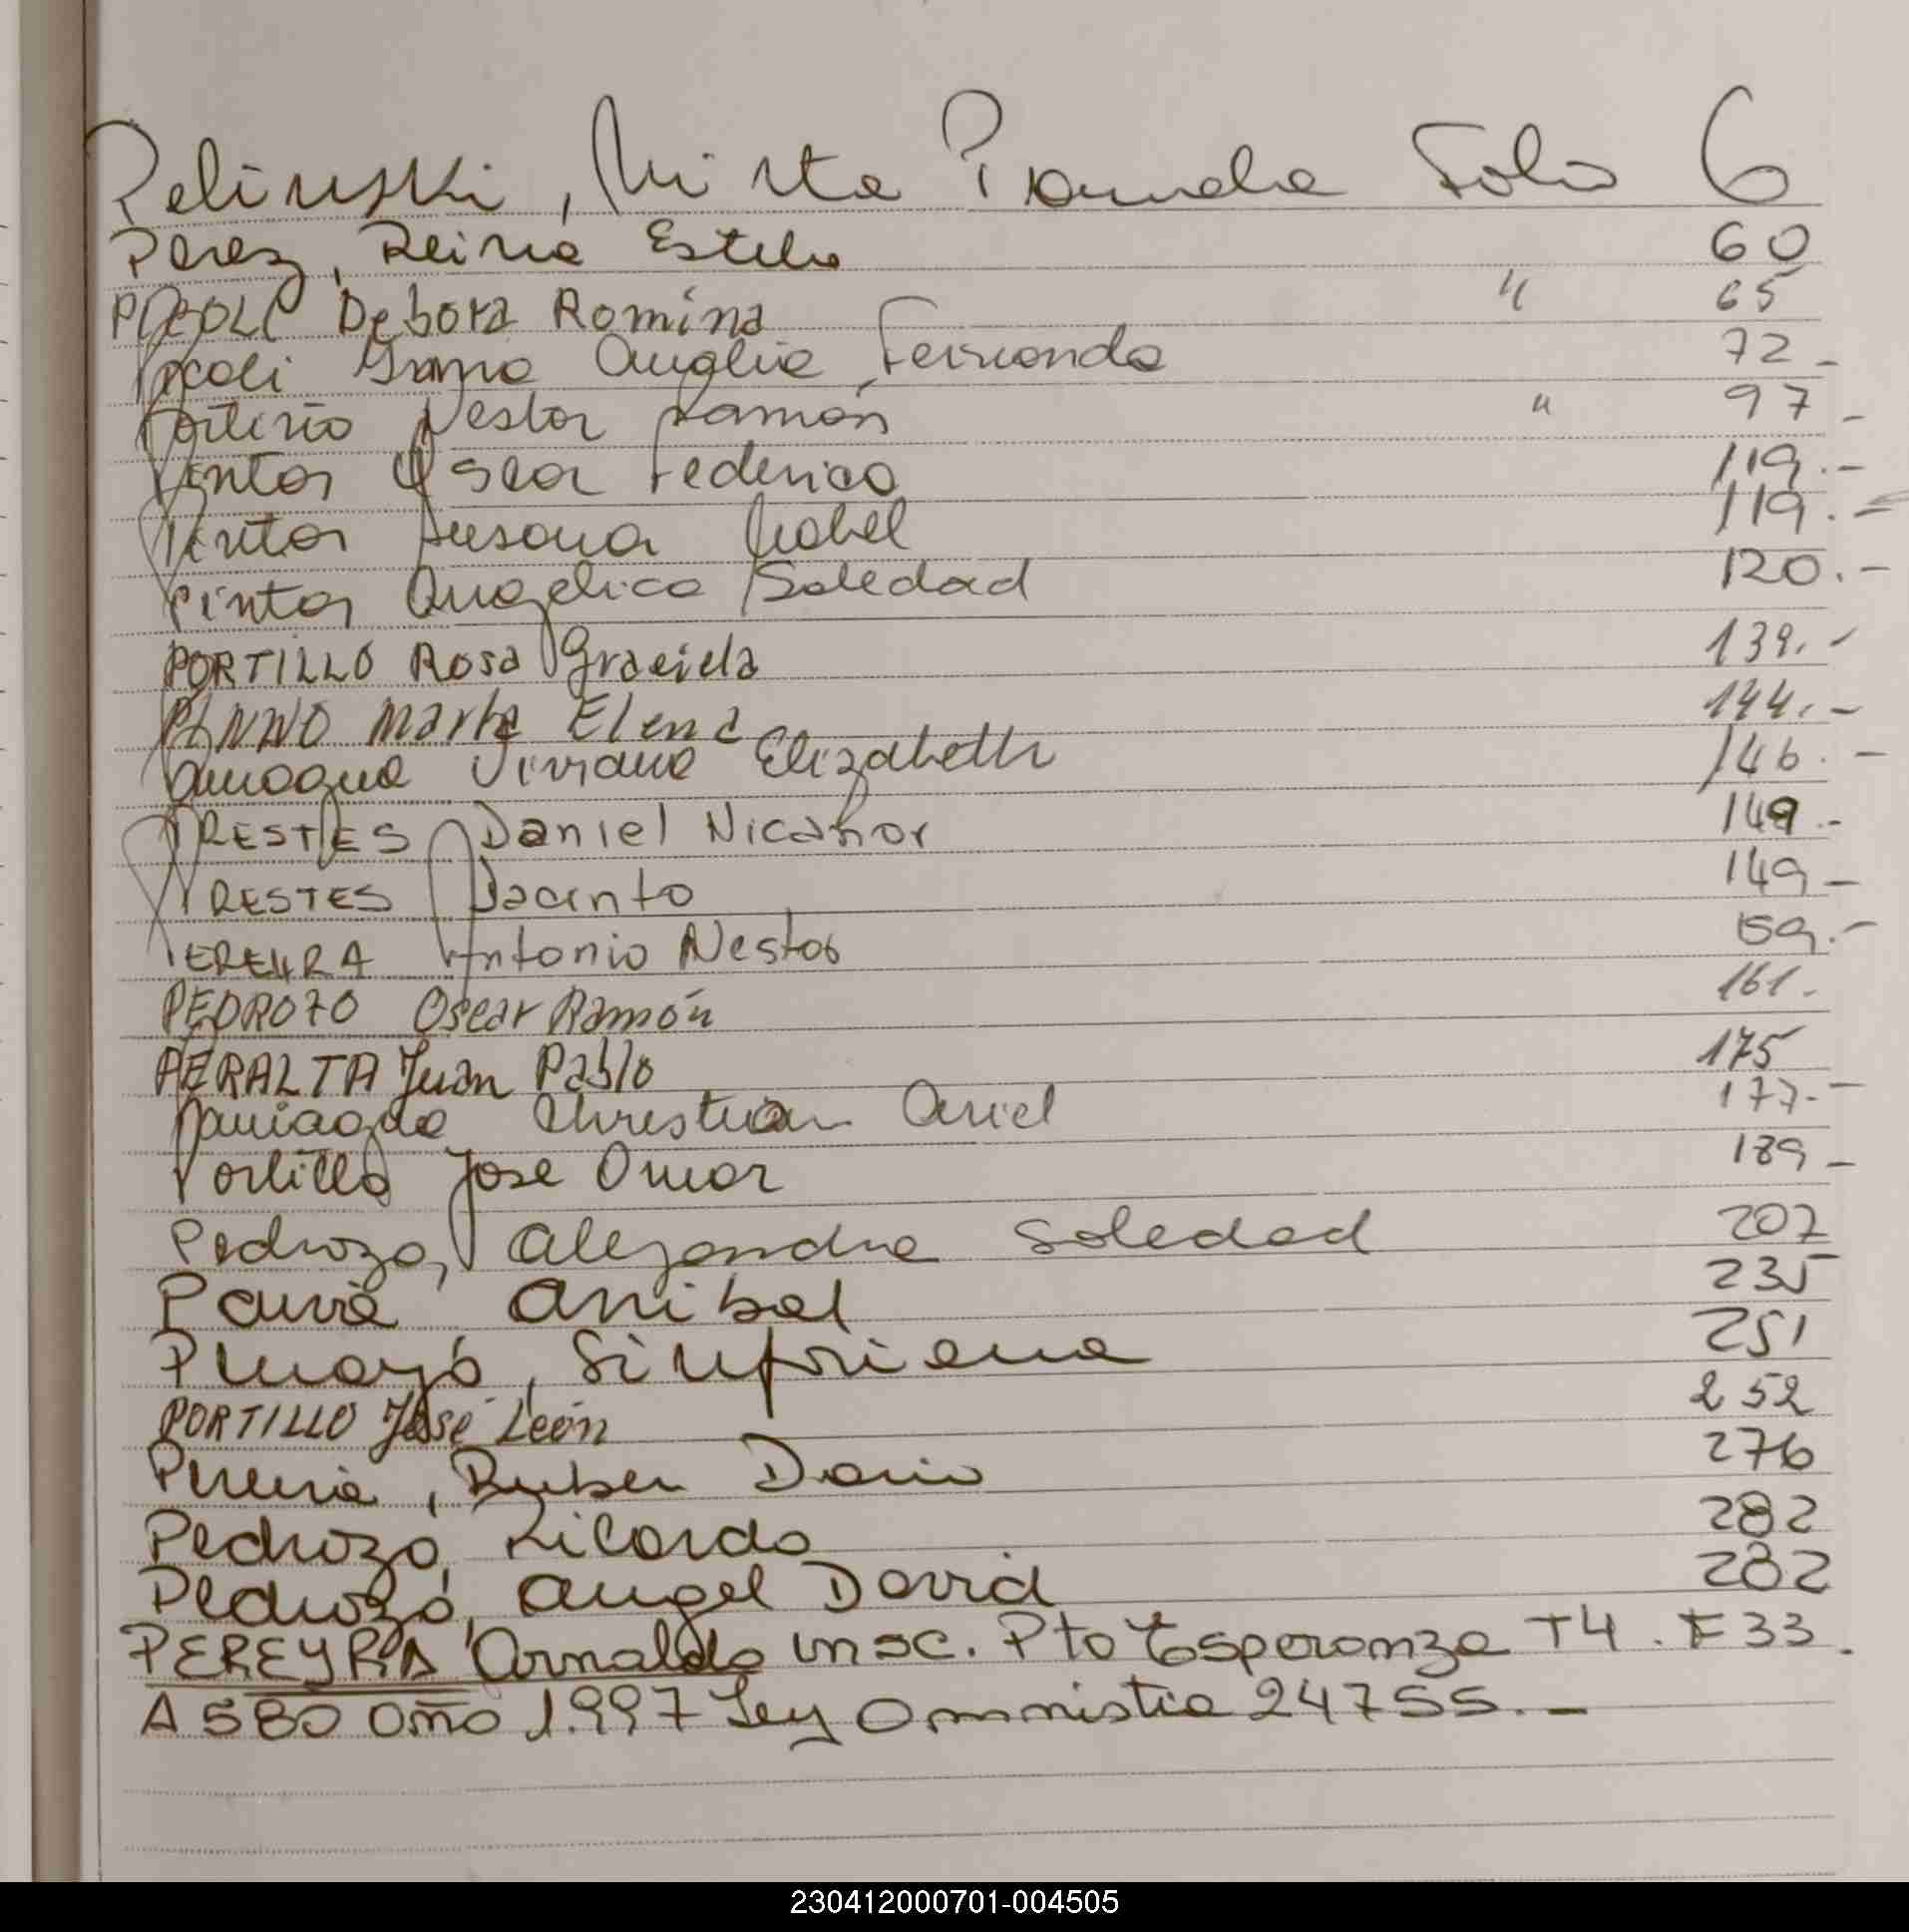 Pelinski, Mirta Ramona Folio 6
Perez, Reina Estela 60
PICOLI Debora Romina " 65
Picoli Anglia Fernanda 72 -
Portirio Nestor Ramón " 97 -
Pintos Oscar Federico 119.-
Pintos Susana Isabel 119.-
Pintos Angelica Soledad 120.-
PORTILLO Rosa Graciela 139.-
PINNO Marta Elena 144.-
Paniagua Viviana Elizabeth 146.-
PRESTES Daniel Nicanor 149.-
PRESTES Jacinto 149 -
PEREYRA Antonio Nestor 159.-
PEDROZO Oscar Ramón 161.
PERALTA Juan Pablo 175
Paniagua Christian Ariel 177.-
Portillo Jose Omar 189 -
Pedrozo, Alejandra Soledad 207
Paiva Anibal 235
Sinforiana 251
PORTILLO José León 252
Pereira, Ruben Dario 276
Pedrozo, Ricardo 282
Pedrozo, Angel David 282
PEREYRA Arnaldo insc. Pto Esperanza T4. F33.
A 580 año 1.997 Ley amnistia 24755.-
230412000701-004505